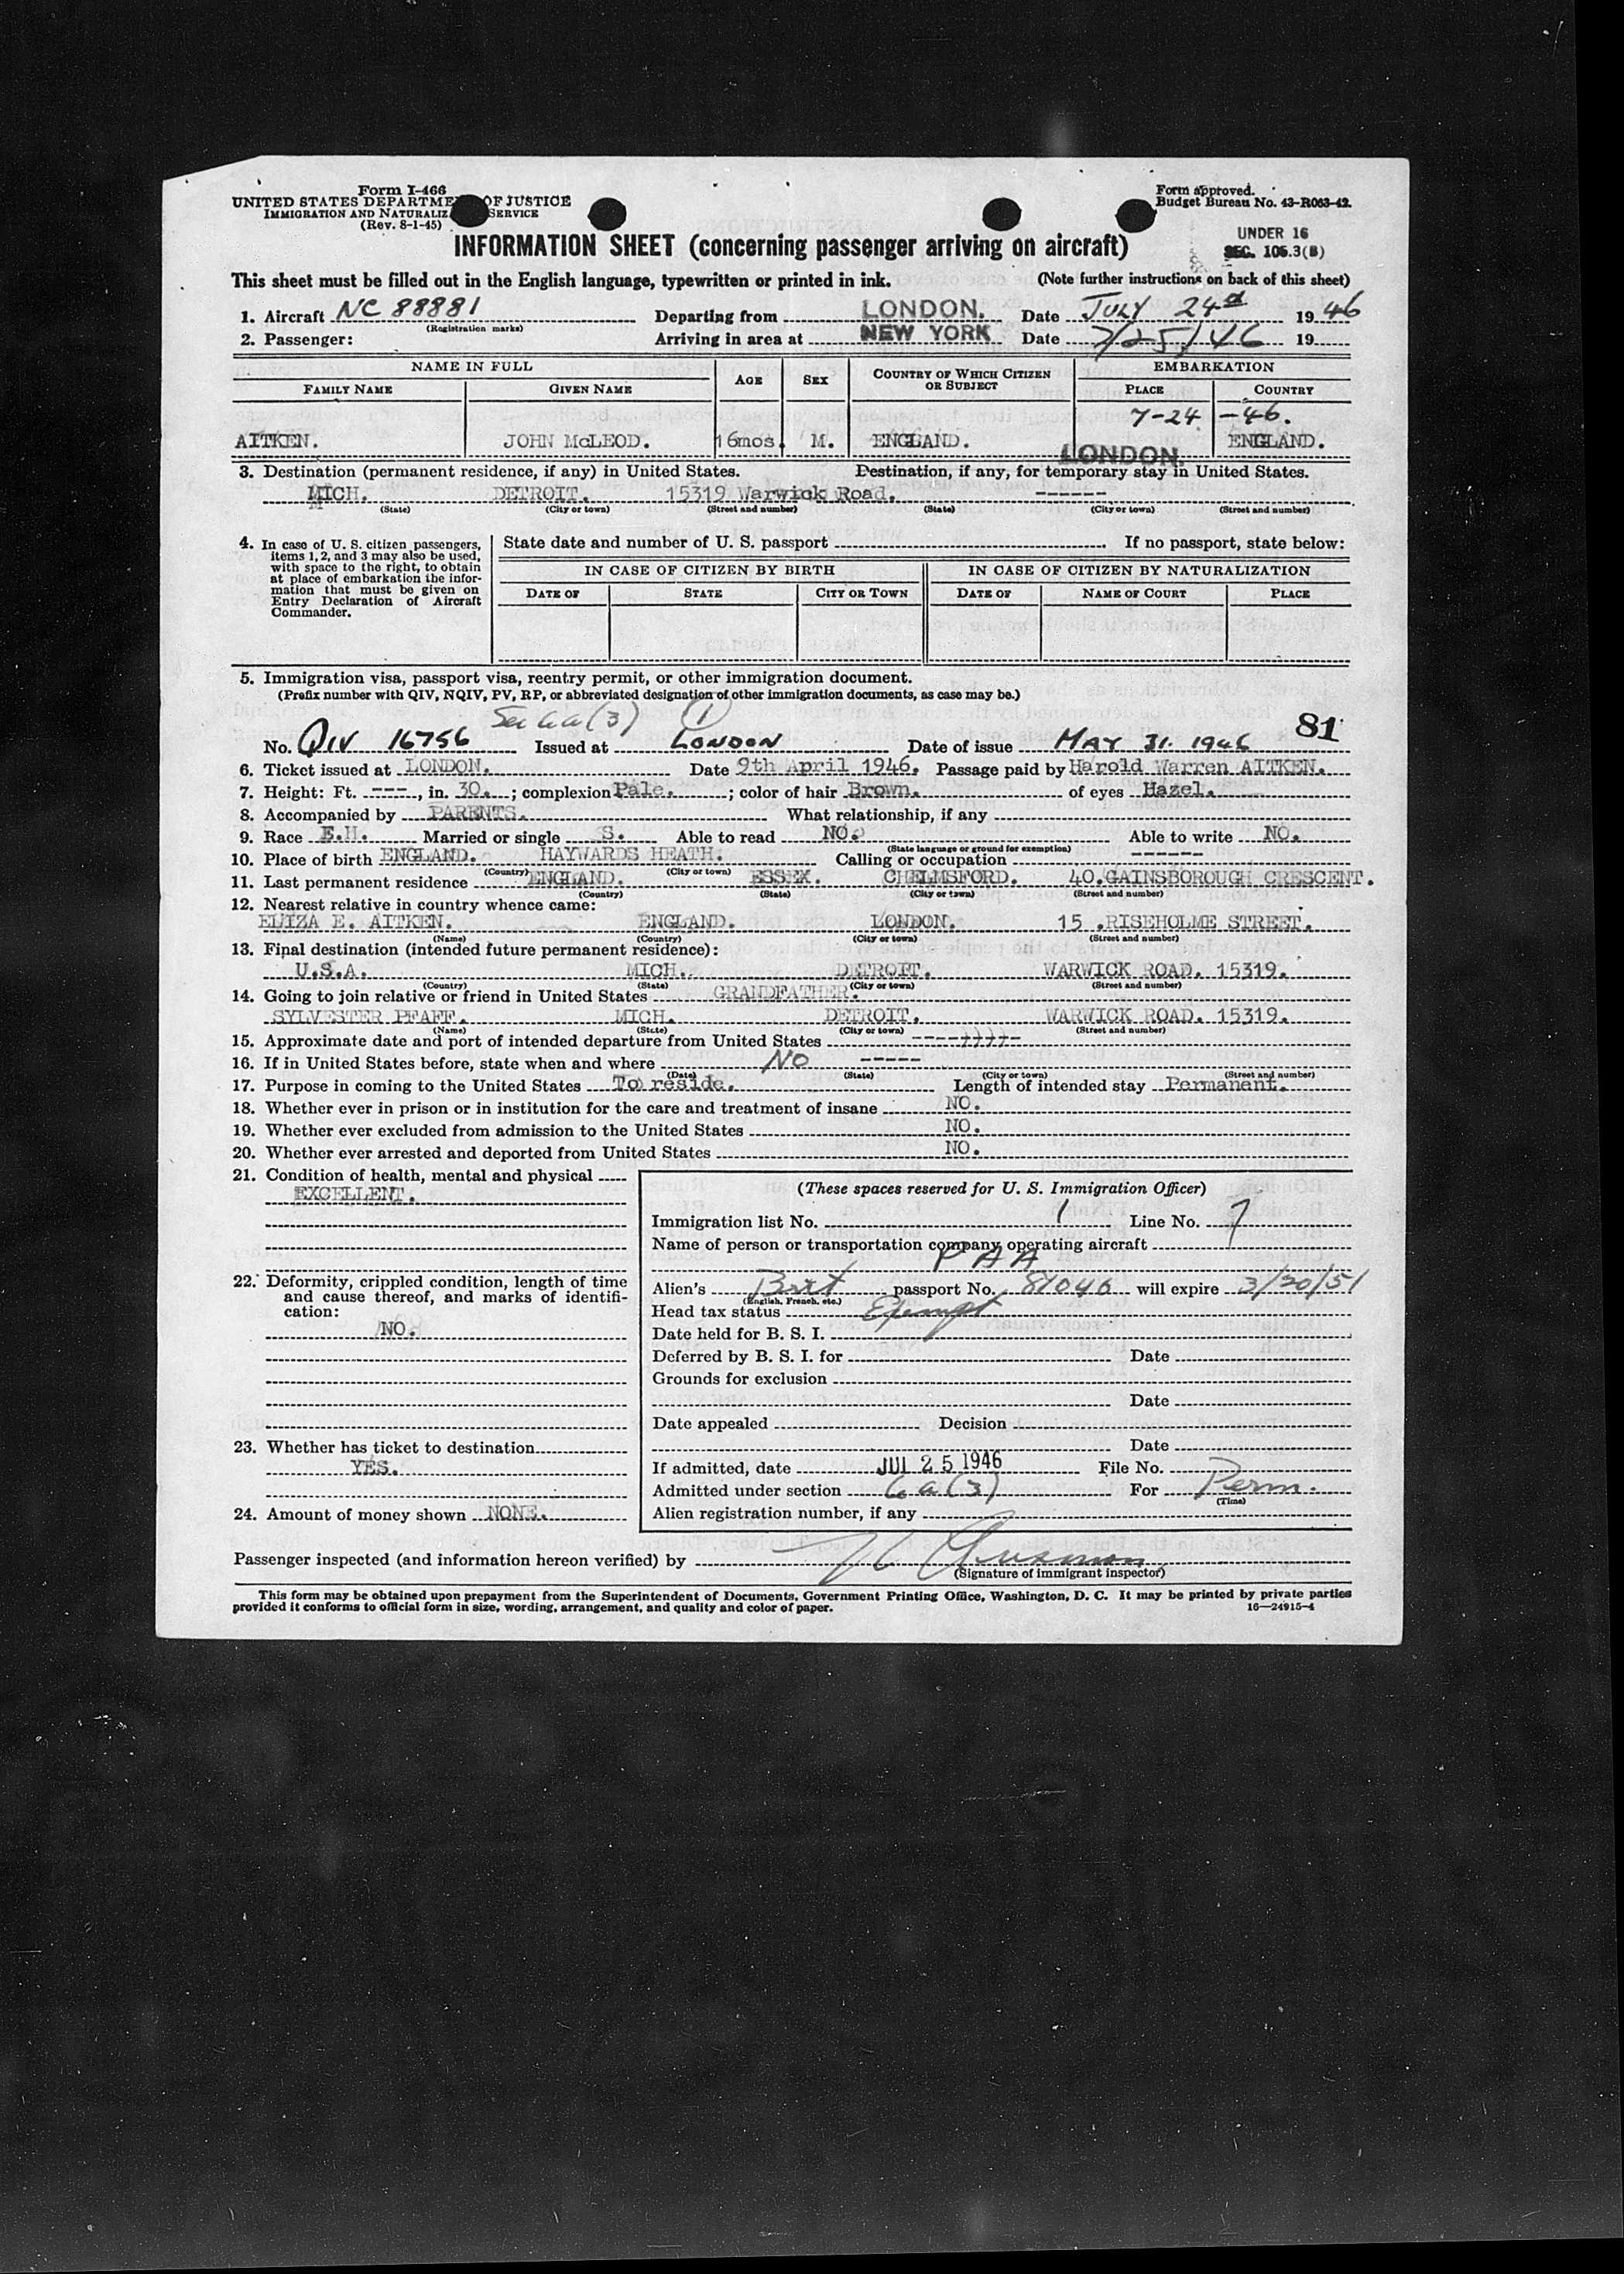 Form I-466
UNITED STATES DEPARTMENT OF JUSTICE
IMMIGRATION AND NATURALIZ SERVICE
(Rev. 8-1-45)
Form approved.
Budget Bureau No. 43-R063-42.
UNDER 16
SEC. 105.3(B)
INFORMATION SHEET (concerning passenger arriving on aircraft)
This sheet must be filled out in the English language, typewritten or printed in ink. (Note further instructions on back of this sheet)
1. Aircraft NC 88881 Departing from LONDON. Date JULY 24th 1946
(Registration marks)
2. Passenger: Arriving in area at NEW YORK Date 7/25/46 19
NAME IN FULL AGE SEX COUNTRY OF WHICH CITIZEN OR SUBJECT EMBARKATION
FAMILY NAME GIVEN NAME PLACE COUNTRY
7-24 -46.
AITKEN. JOHN McLEOD. 16mos. M. ENGLAND. LONDON. ENGLAND.
3. Destination (permanent residence, if any) in United States. Destination, if any, for temporary stay in United States.
MICH. DETROIT. 15319 Warwick Road. ------
(State) (City or town) (Street and number) (State) (City or town) (Street and number)
4. In case of U. S. citizen passengers, items 1, 2, and 3 may also be used, with space to the right, to obtain at place of embarkation the information that must be given on Entry Declaration of Aircraft Commander.
State date and number of U. S. passport If no passport, state below:
IN CASE OF CITIZEN BY BIRTH IN CASE OF CITIZEN BY NATURALIZATION
DATE OF STATE CITY OR TOWN DATE OF NAME OF COURT PLACE
5. Immigration visa, passport visa, reentry permit, or other immigration document.
(Prefix number with QIV, NQIV, PV, RP, or abbreviated designation of other immigration documents, as case may be.)
Sec 6a(3) (1) 81
No. QIV 16756 Issued at LONDON Date of issue MAY 31. 1946
6. Ticket issued at LONDON. Date 9th April 1946. Passage paid by Harold Warren AITKEN.
7. Height: Ft. ---, in. 30. ; complexion Pale. ; color of hair Brown. of eyes Hazel.
8. Accompanied by PARENTS. What relationship, if any
9. Race E.H. Married or single S. Able to read NO. Able to write NO.
(State language or ground for exemption)
10. Place of birth ENGLAND. HAYWARDS HEATH. Calling or occupation ------
(Country) (City or town)
11. Last permanent residence ENGLAND. ESSEX. CHELMSFORD. 40.GAINSBOROUGH CRESCENT.
(Country) (State) (City or town) (Street and number)
12. Nearest relative in country whence came:
ELIZA E. AITKEN. ENGLAND. LONDON. 15 .RISEHOLME STREET.
(Name) (Country) (City or town) (Street and number)
13. Final destination (intended future permanent residence):
U.S.A. MICH. DETROIT. WARWICK ROAD. 15319.
(Country) (State) (City or town) (Street and number)
14. Going to join relative or friend in United States GRANDFATHER.
SYLVESTER PFAFF. MICH. DETROIT. WARWICK ROAD. 15319.
(Name) (State) (City or town) (Street and number)
15. Approximate date and port of intended departure from United States
16. If in United States before, state when and where NO -----
(Date) (State) (City or town) (Street and number)
17. Purpose in coming to the United States To reside. Length of intended stay Permanent.
18. Whether ever in prison or in institution for the care and treatment of insane NO.
19. Whether ever excluded from admission to the United States NO.
20. Whether ever arrested and deported from United States NO.
21. Condition of health, mental and physical
EXCELLENT.
22. Deformity, crippled condition, length of time and cause thereof, and marks of identification:
NO.
23. Whether has ticket to destination
YES.
24. Amount of money shown NONE.
(These spaces reserved for U. S. Immigration Officer)
Immigration list No. 1 Line No. 7
Name of person or transportation company operating aircraft
P A A
Alien's Brit passport No. 81046 will expire 3/20/51
(English, French, etc.)
Head tax status Exempt
Date held for B. S. I.
Deferred by B. S. I. for Date
Grounds for exclusion
Date
Date appealed Decision
Date
If admitted, date JUL 25 1946 File No.
Admitted under section 6a(3) For Perm.
(Time)
Alien registration number, if any
Passenger inspected (and information hereon verified) by
(Signature of immigrant inspector)
This form may be obtained upon prepayment from the Superintendent of Documents, Government Printing Office, Washington, D. C. It may be printed by private parties
provided it conforms to official form in size, wording, arrangement, and quality and color of paper. 16—24915-4